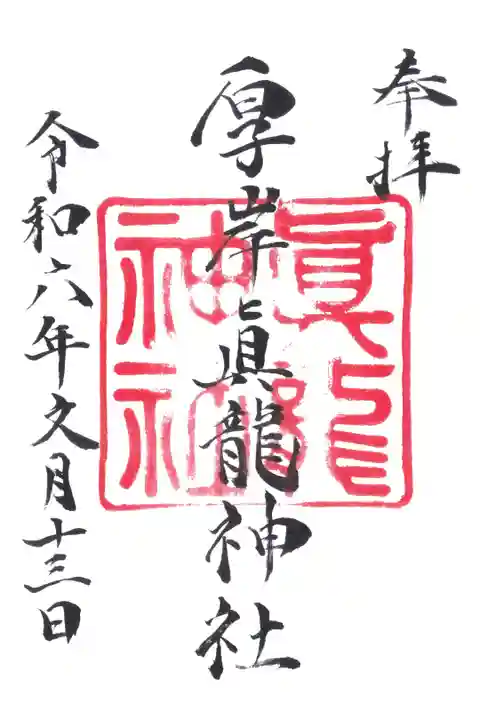 奉拝
厚岸眞龍神社
眞龍
神社
令和六年文月十三日